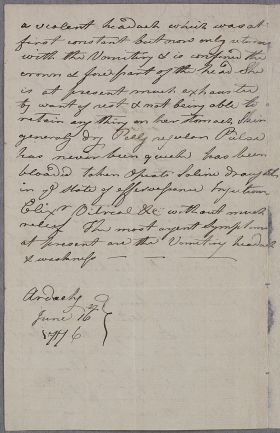 a violent headach which was at
first constant but now only returns
with the Vomiting & is confined the
crown & forepart of the head She
is at present much exhausted
by want of rest & not being able to
retain any thing on her stomach, Skin
generally dry Belly regular Pulse
has never been quick has been
blooded taken Opiats Saline draughts
in ye State of effervescence Injections
Elixr Vitriol &c without much
relief The most urgent Symptoms
at present are the Vomiting headach
& weakness
Ardachy
June 16
1776